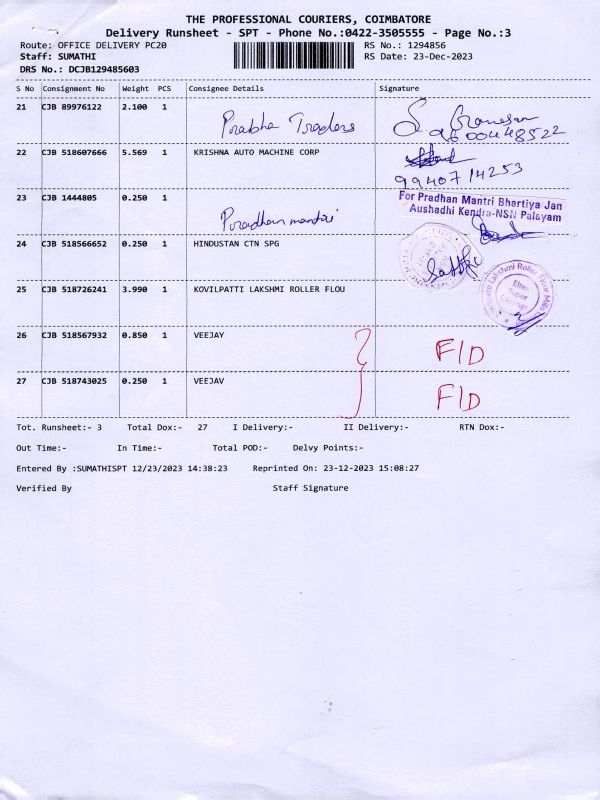 THE PROFESSIONAL COURIERS, COIMBATORE
Delivery Runsheet - SPT - Phone No.:0422-3505555 - Page No.:3
Route: OFFICE DELIVERY PC20 RS No.: 1294856
Staff: SUMATHI RS Date: 23-Dec-2023
DRS No.: DCJB129485603
S No Consignment No Weight PCS Consignee Details Signature
21 CJB 89976122 2.100 1 Prabha Traders
9600448522
22 CJB 518607666 5.569 1 KRISHNA AUTO MACHINE CORP
9940714253
23 CJB 1444805 0.250 1 Piradhan mantiri
For Pradhan Mantri Bhartiya Jan
Aushadhi Kendra-NSN Palayam
24 CJB 518566652 0.250 1 HINDUSTAN CTN SPG
25 CJB 518726241 3.990 1 KOVILPATTI LAKSHMI ROLLER FLOU
Lakshmi Roller Flour Mills
Elten
Super
26 CJB 518567932 0.850 1 VEEJAY F/D
27 CJB 518743025 0.250 1 VEEJAV F/D
Tot. Runsheet:- 3 Total Dox:- 27 I Delivery:- II Delivery:- RTN Dox:-
Out Time:- In Time:- Total POD:- Delvy Points:-
Entered By :SUMATHISPT 12/23/2023 14:38:23 Reprinted On: 23-12-2023 15:08:27
Verified By Staff Signature